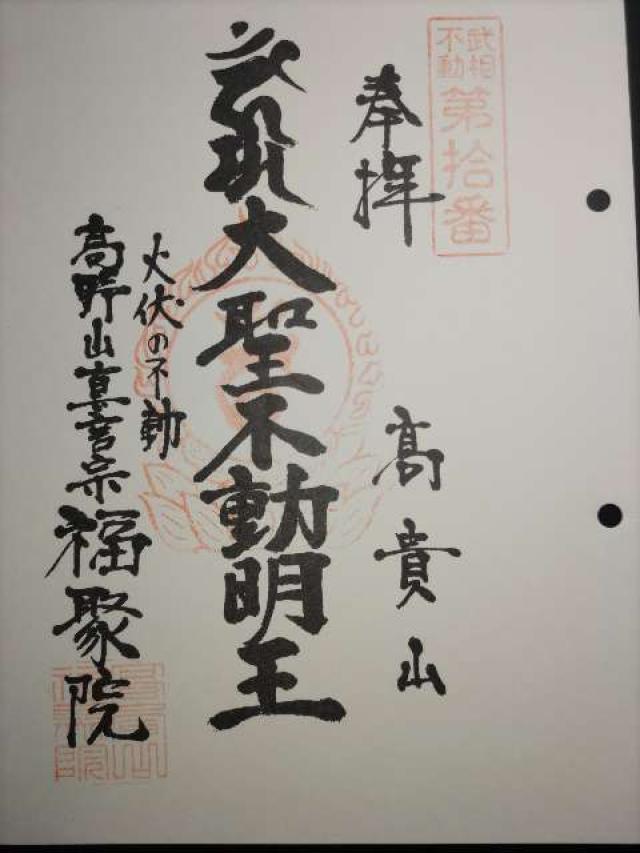 武相
不動
第拾番
奉拝
高貴山
大聖不動明王
火伏の不動
高野山真言宗
福聚院